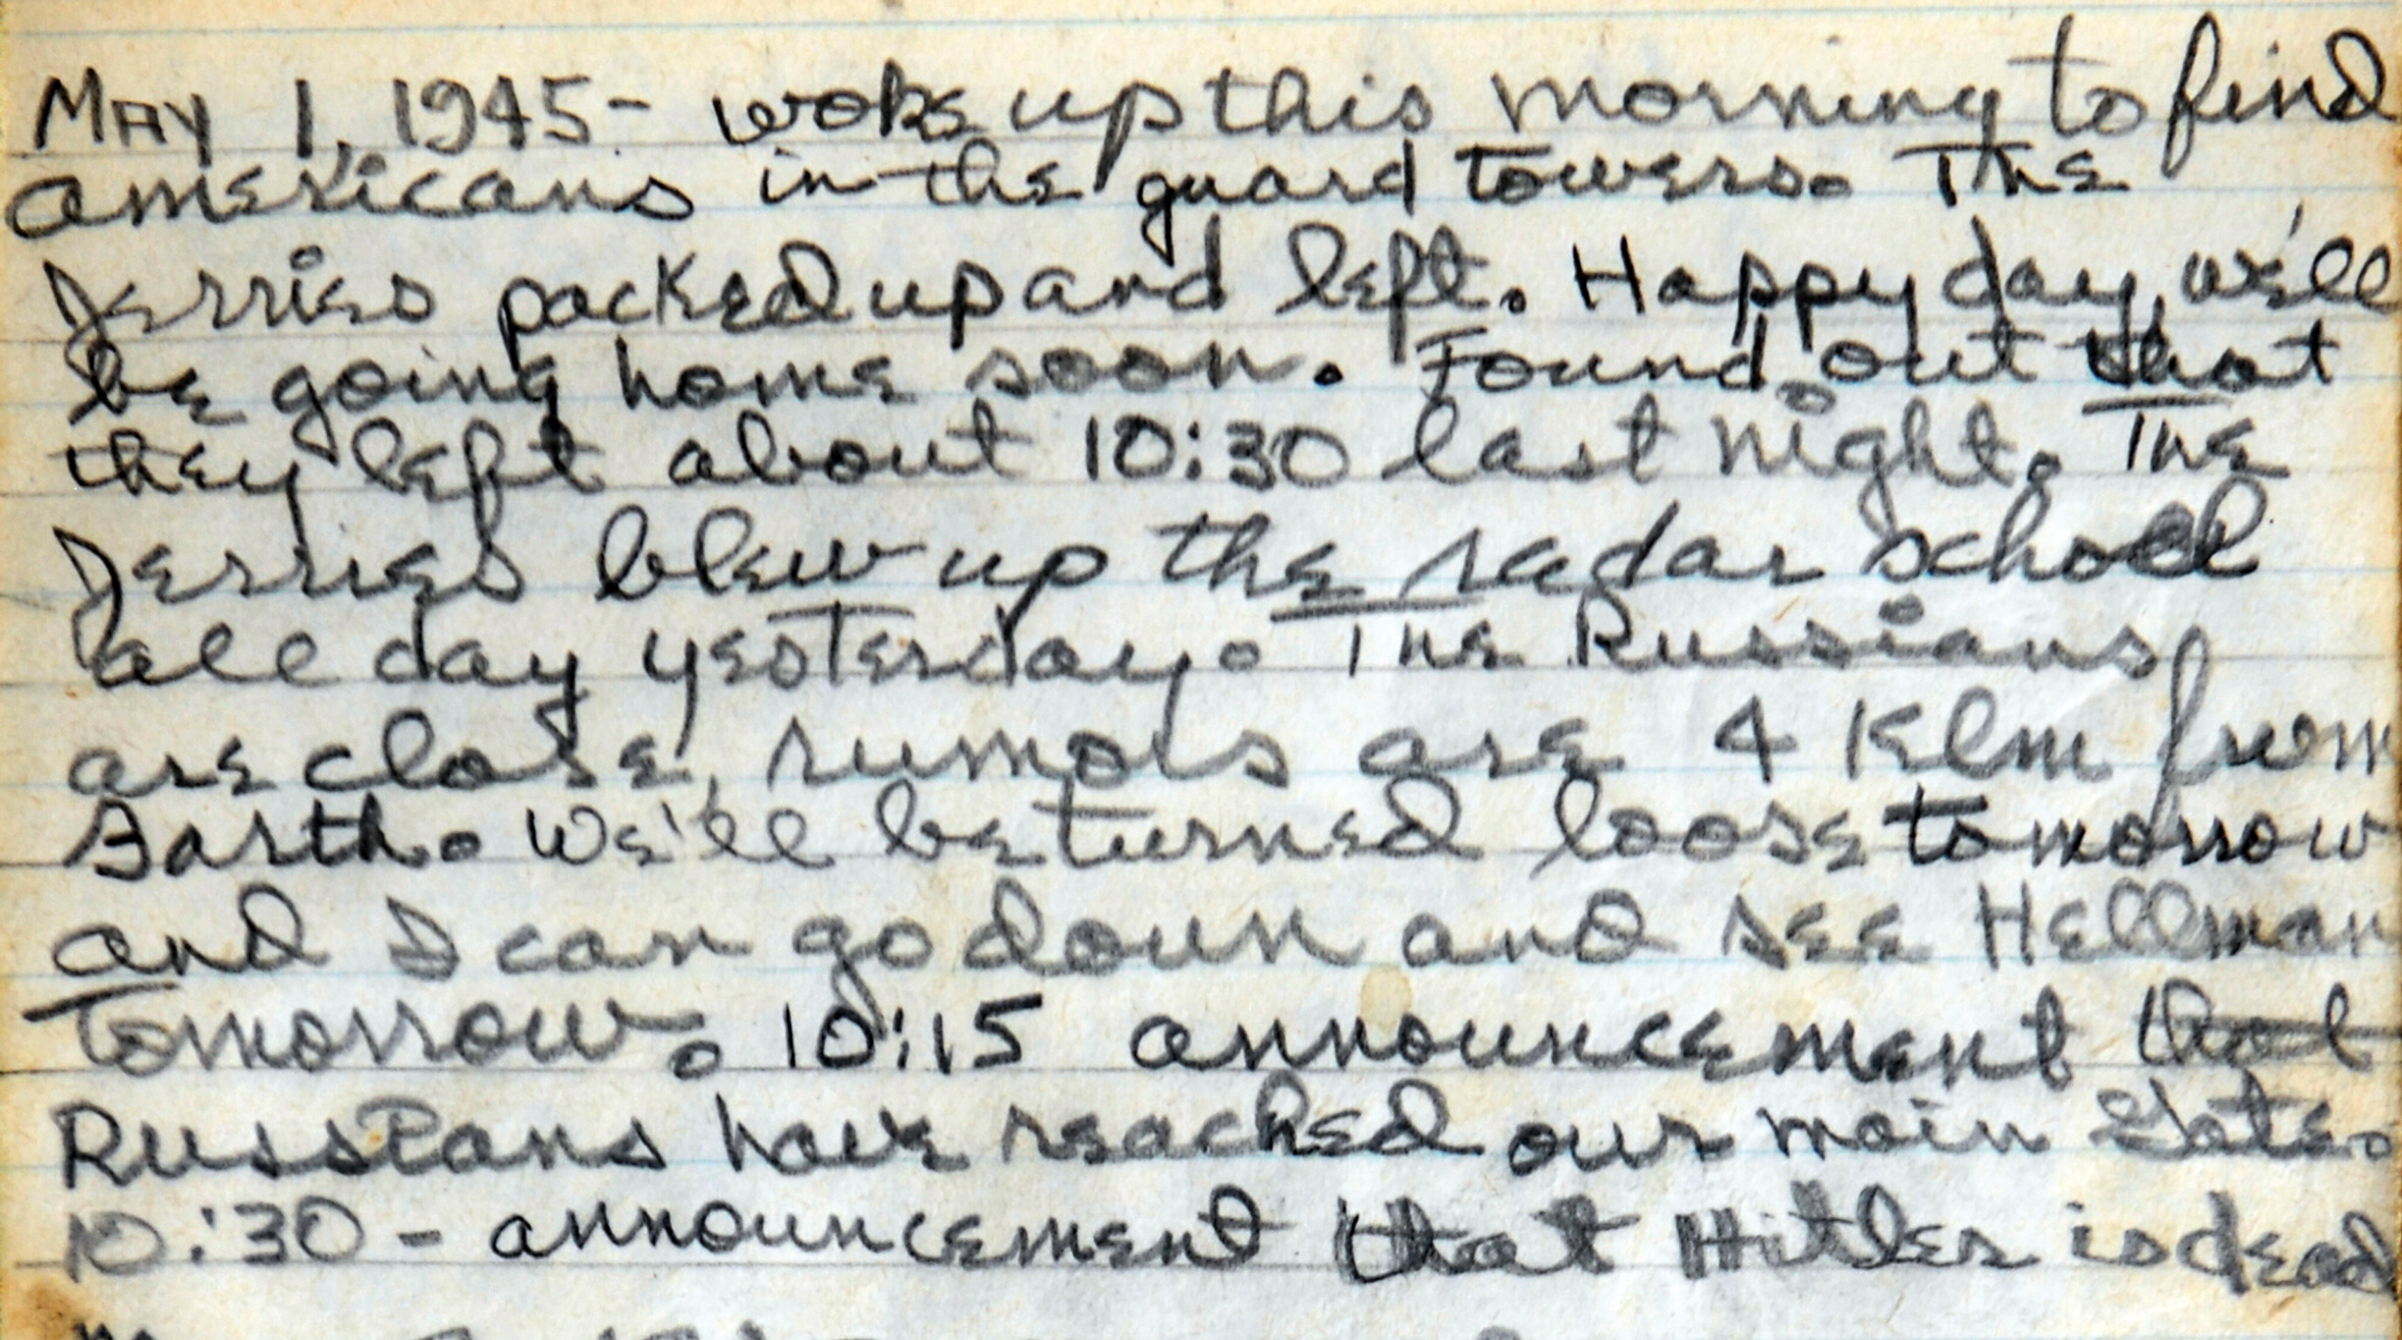 MAY 1, 1945- woke up this morning to find
americans in the guard towers. The
Jerries packed up and left. Happy day, we'll
be going home soon. Found out that
they left about 10:30 last night. The
Jerries blew up the radar school
all day yesterday. The Russians
are close, rumors are 4 Klm from
Barth. We'll be turned loose tomorrow
and I can go down and see Hellman
tomorrow. 10:15 announcement that
Russians have reached our main Gate.
10:30 - announcement that Hitler is dead